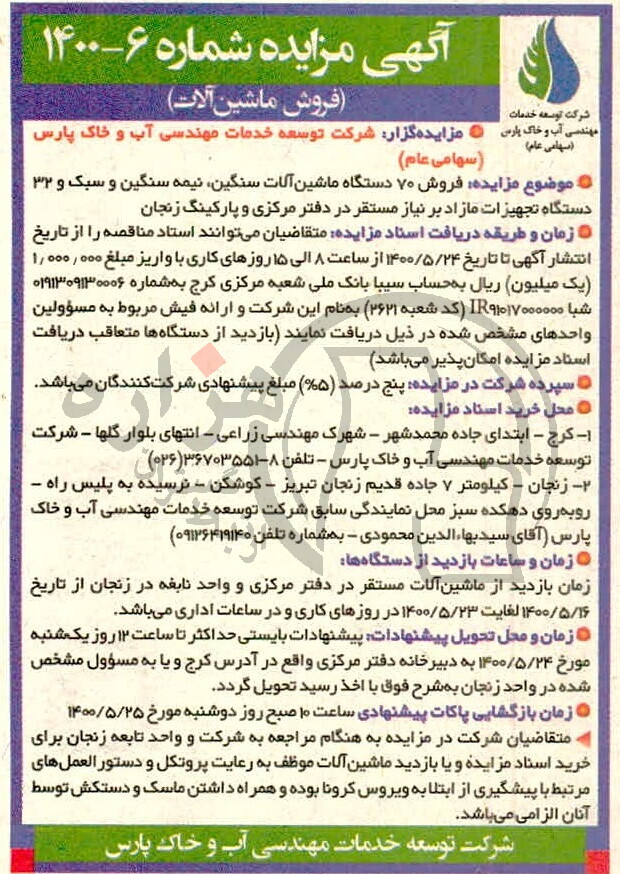 آگهی مزایده شماره ۶-۱۴۰۰
(فروش ماشین‌آلات)
شرکت توسعه خدمات
مهندسی آب و خاک پارس
(سهامی عام)
مزایده‌گزار: شرکت توسعه خدمات مهندسی آب و خاک پارس
(سهامی عام)
موضوع مزایده: فروش ۷۰ دستگاه ماشین‌آلات سنگین، نیمه سنگین و سبک و ۳۲
دستگاه تجهیزات مازاد بر نیاز مستقر در دفتر مرکزی و پارکینگ زنجان
زمان و طریقه دریافت اسناد مزایده: متقاضیان می‌توانند اسناد مناقصه را از تاریخ
انتشار آگهی تا تاریخ ۱۴۰۰/۵/۲۴ از ساعت ۸ الی ۱۵ روزهای کاری با واریز مبلغ ۱٫۰۰۰٫۰۰۰
(یک میلیون) ریال به‌حساب سیبا بانک ملی شعبه مرکزی کرج به‌شماره ۰۱۹۱۳۰۹۱۳۰۰۰۶
شبا IR۹۱۰۱۷۰۰۰۰۰۰۰ (کد شعبه ۲۶۲۱) به‌نام این شرکت و ارائه فیش مربوط به مسؤولین
واحدهای مشخص شده در ذیل دریافت نمایند (بازدید از دستگاه‌ها متعاقب دریافت
اسناد مزایده امکان‌پذیر می‌باشد)
سپرده شرکت در مزایده: پنج درصد (۵%) مبلغ پیشنهادی شرکت‌کنندگان می‌باشد.
محل خرید اسناد مزایده:
۱- کرج - ابتدای جاده محمدشهر - شهرک مهندسی زراعی - انتهای بلوار گلها - شرکت
توسعه خدمات مهندسی آب و خاک پارس - تلفن ۸-۳۶۷۰۳۵۵۱(۰۲۶)
۲- زنجان - کیلومتر ۷ جاده قدیم زنجان تبریز - کوشکن - نرسیده به پلیس راه -
روبه‌روی دهکده سبز محل نمایندگی سابق شرکت توسعه خدمات مهندسی آب و خاک
پارس (آقای سیدبهاءالدین محمودی - به‌شماره تلفن ۰۹۱۲۶۴۱۹۱۴۰)
زمان و ساعات بازدید از دستگاه‌ها:
زمان بازدید از ماشین‌آلات مستقر در دفتر مرکزی و واحد تابعه در زنجان از تاریخ
۱۴۰۰/۵/۱۶ لغایت ۱۴۰۰/۵/۲۳ در روزهای کاری و در ساعات اداری می‌باشد.
زمان و محل تحویل پیشنهادات: پیشنهادات بایستی حداکثر تا ساعت ۱۲ روز یک‌شنبه
مورخ ۱۴۰۰/۵/۲۴ به دبیرخانه دفتر مرکزی واقع در آدرس کرج و یا به مسؤول مشخص
شده در واحد زنجان به‌شرح فوق با اخذ رسید تحویل گردد.
زمان بازگشایی پاکات پیشنهادی ساعت ۱۰ صبح روز دوشنبه مورخ ۱۴۰۰/۵/۲۵
متقاضیان شرکت در مزایده به هنگام مراجعه به شرکت و واحد تابعه زنجان برای
خرید اسناد مزایده و یا بازدید ماشین‌آلات موظف به رعایت پروتکل و دستورالعمل‌های
مرتبط با پیشگیری از ابتلا به ویروس کرونا بوده و همراه داشتن ماسک و دستکش توسط
آنان الزامی می‌باشد.
شرکت توسعه خدمات مهندسی آب و خاک پارس
هزاره